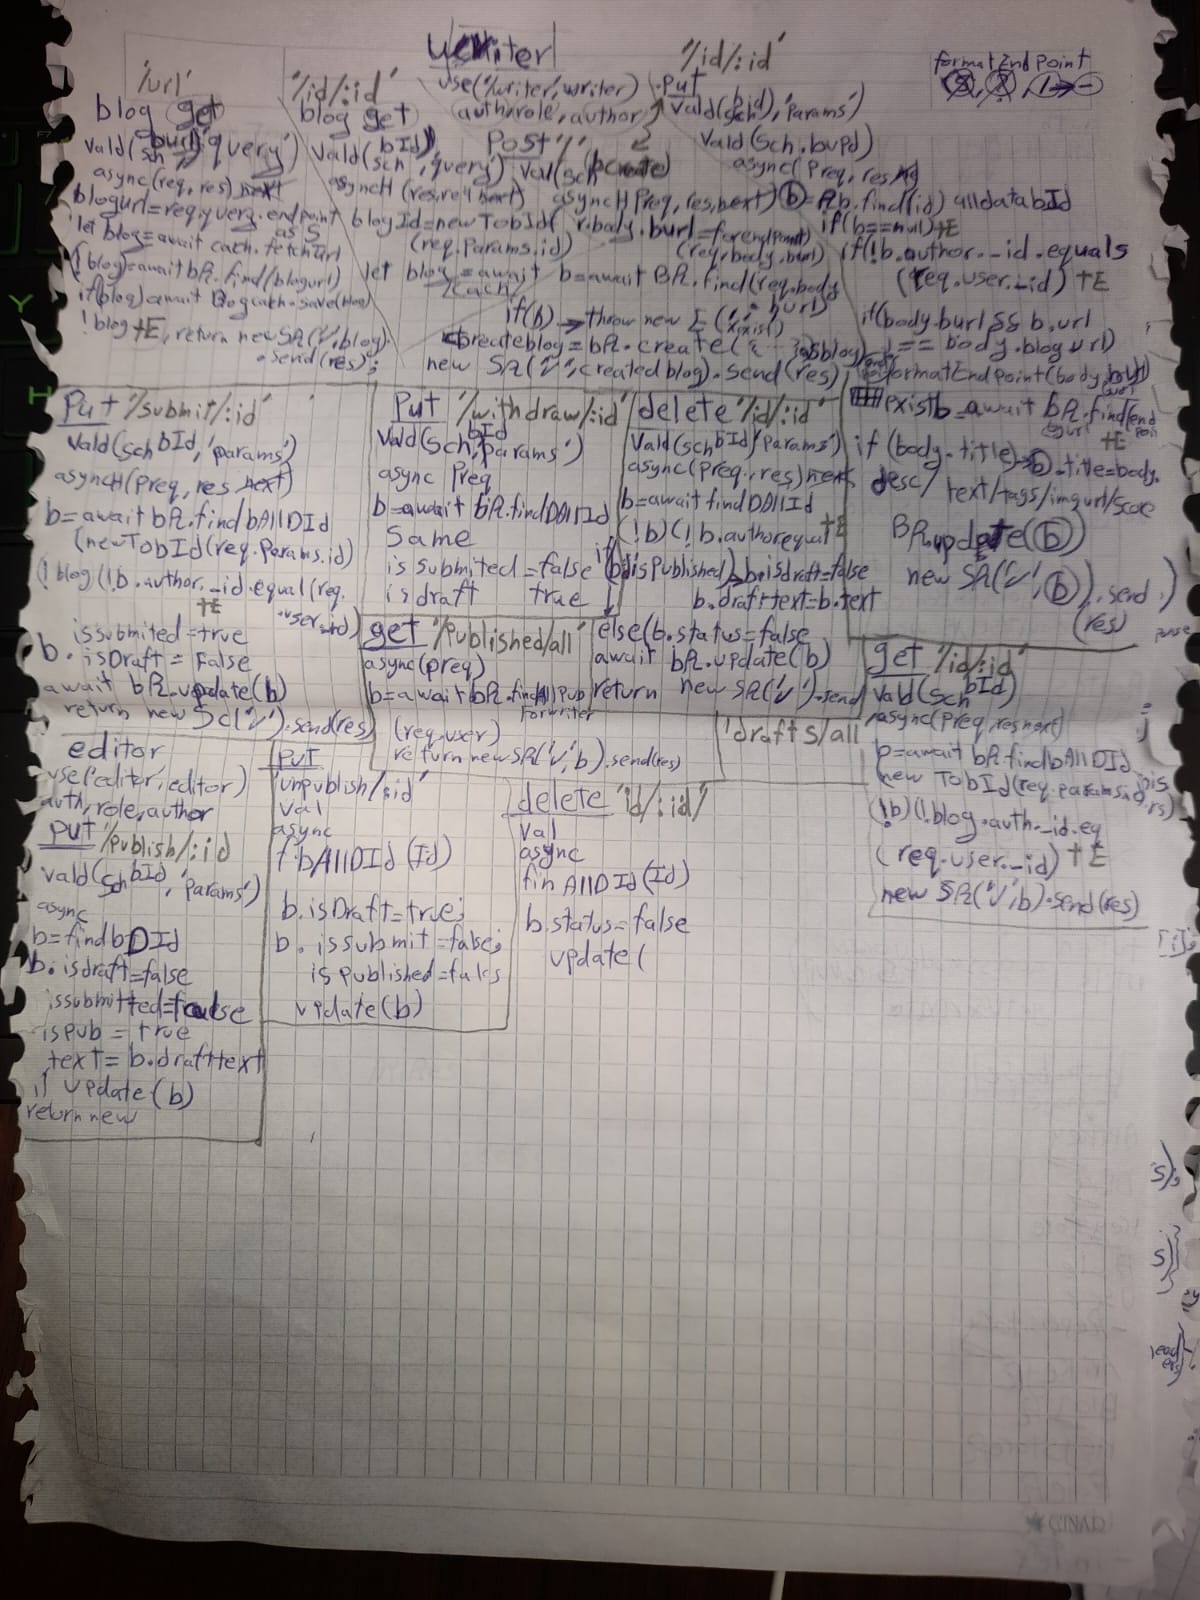 writer
format End point
'/url'
blog get
Vald(sch burl, 'query')
async(req, res) next
blogurl=req.query.endpoint
as S
let blog=await cach.fetchurl
(!blog)=await bR.find(blogurl)
if(blog) await Blogcach.save(blog)
!blog tE, return new SR('✓', blog)
.send(res);
'/id/:id'
blog get
Vald(sch bId, 'query')
asyncH (res, req next)
blogId=new TobId(
(req.params.id)
let blog=await
cach
use('/writer', writer)
auth, role, author
Post '/'
Val(sch bcreate)
asyncH Preq, res, next)
r.body.burl=forendpoint)
(req.body.burl)
b=await BR.find(req.body
burl)
if(b) → throw new E('exist')
createblog=bR.create(
new SR('✓', createdblog).send(res)
'/id/:id'
.put
Vald(sch bId), 'params')
Vald(sch.bupd)
async(Preq, res
b=Rb.find(id) alldatabId
if(b==null) tE
if(!b.author._id.equals
(req.user._id) tE
if(body.burl && b.url
!== body.blogurl)
formatEndPoint(body.burl)
existb=await bR.find(end
tE
if(body.title)→b.title=body.
desc/text/tags/imgurl/score
BR.update(b)
new SR('✓', b)).send
(res)
Put '/submit/:id'
Vald(sch bId, 'params')
asyncH(Preq, res next)
b=await bR.findbAllDId
(newTobId(req.params.id)
(!blog(!b.author._id.equal(req.
tE
user.id)
issubmited=true
b. isDraft=False
await bR.update(b)
return new Sc('✓').send(res)
Put '/withdraw/:id'
Vald(sch bId, 'params')
async Preq
b=await bR.findDAllId
Same
issubmited=false
isdraft true
delete '/id/:id'
Vald(sch bId 'params')
async(preq, res)next
b=await findDAllId
(!b)(!b.authorequal tE
if(b.isPublished) b.isdraft=false
b.drafttext=b.text
else(b.status=false
await bR.update(b)
return new SR('✓').send
get '/published/all'
async(preq)
b=await bR.findAllPub
forwriter
(req.user)
return new SR('✓', b).send(res)
'drafts/all
get '/id/:id'
Vald(sch bId)
async(Preq, res next)
b=await bR.findbAllDId
new TobId(req.params.id
(!b)(!.blog.auth._id.eq
(req.user._id) tE
new SR('✓', b).send(res)
editor
use('editor', editor)
auth, role, author
put '/publish/:id
Vald(sch bId, 'params')
async
b=findbDId
b.isdraft=false
issubmitted=false
ispub=true
text=b.drafttext
update(b)
return new
put
'unpublish/:id'
val
async
f.bAllDId(Id)
b.isDraft=true;
b. issubmit=false;
isPublished=fals
update(b)
delete 'id/:id/'
Val
async
finAllDId(Id)
b.status=false
update(